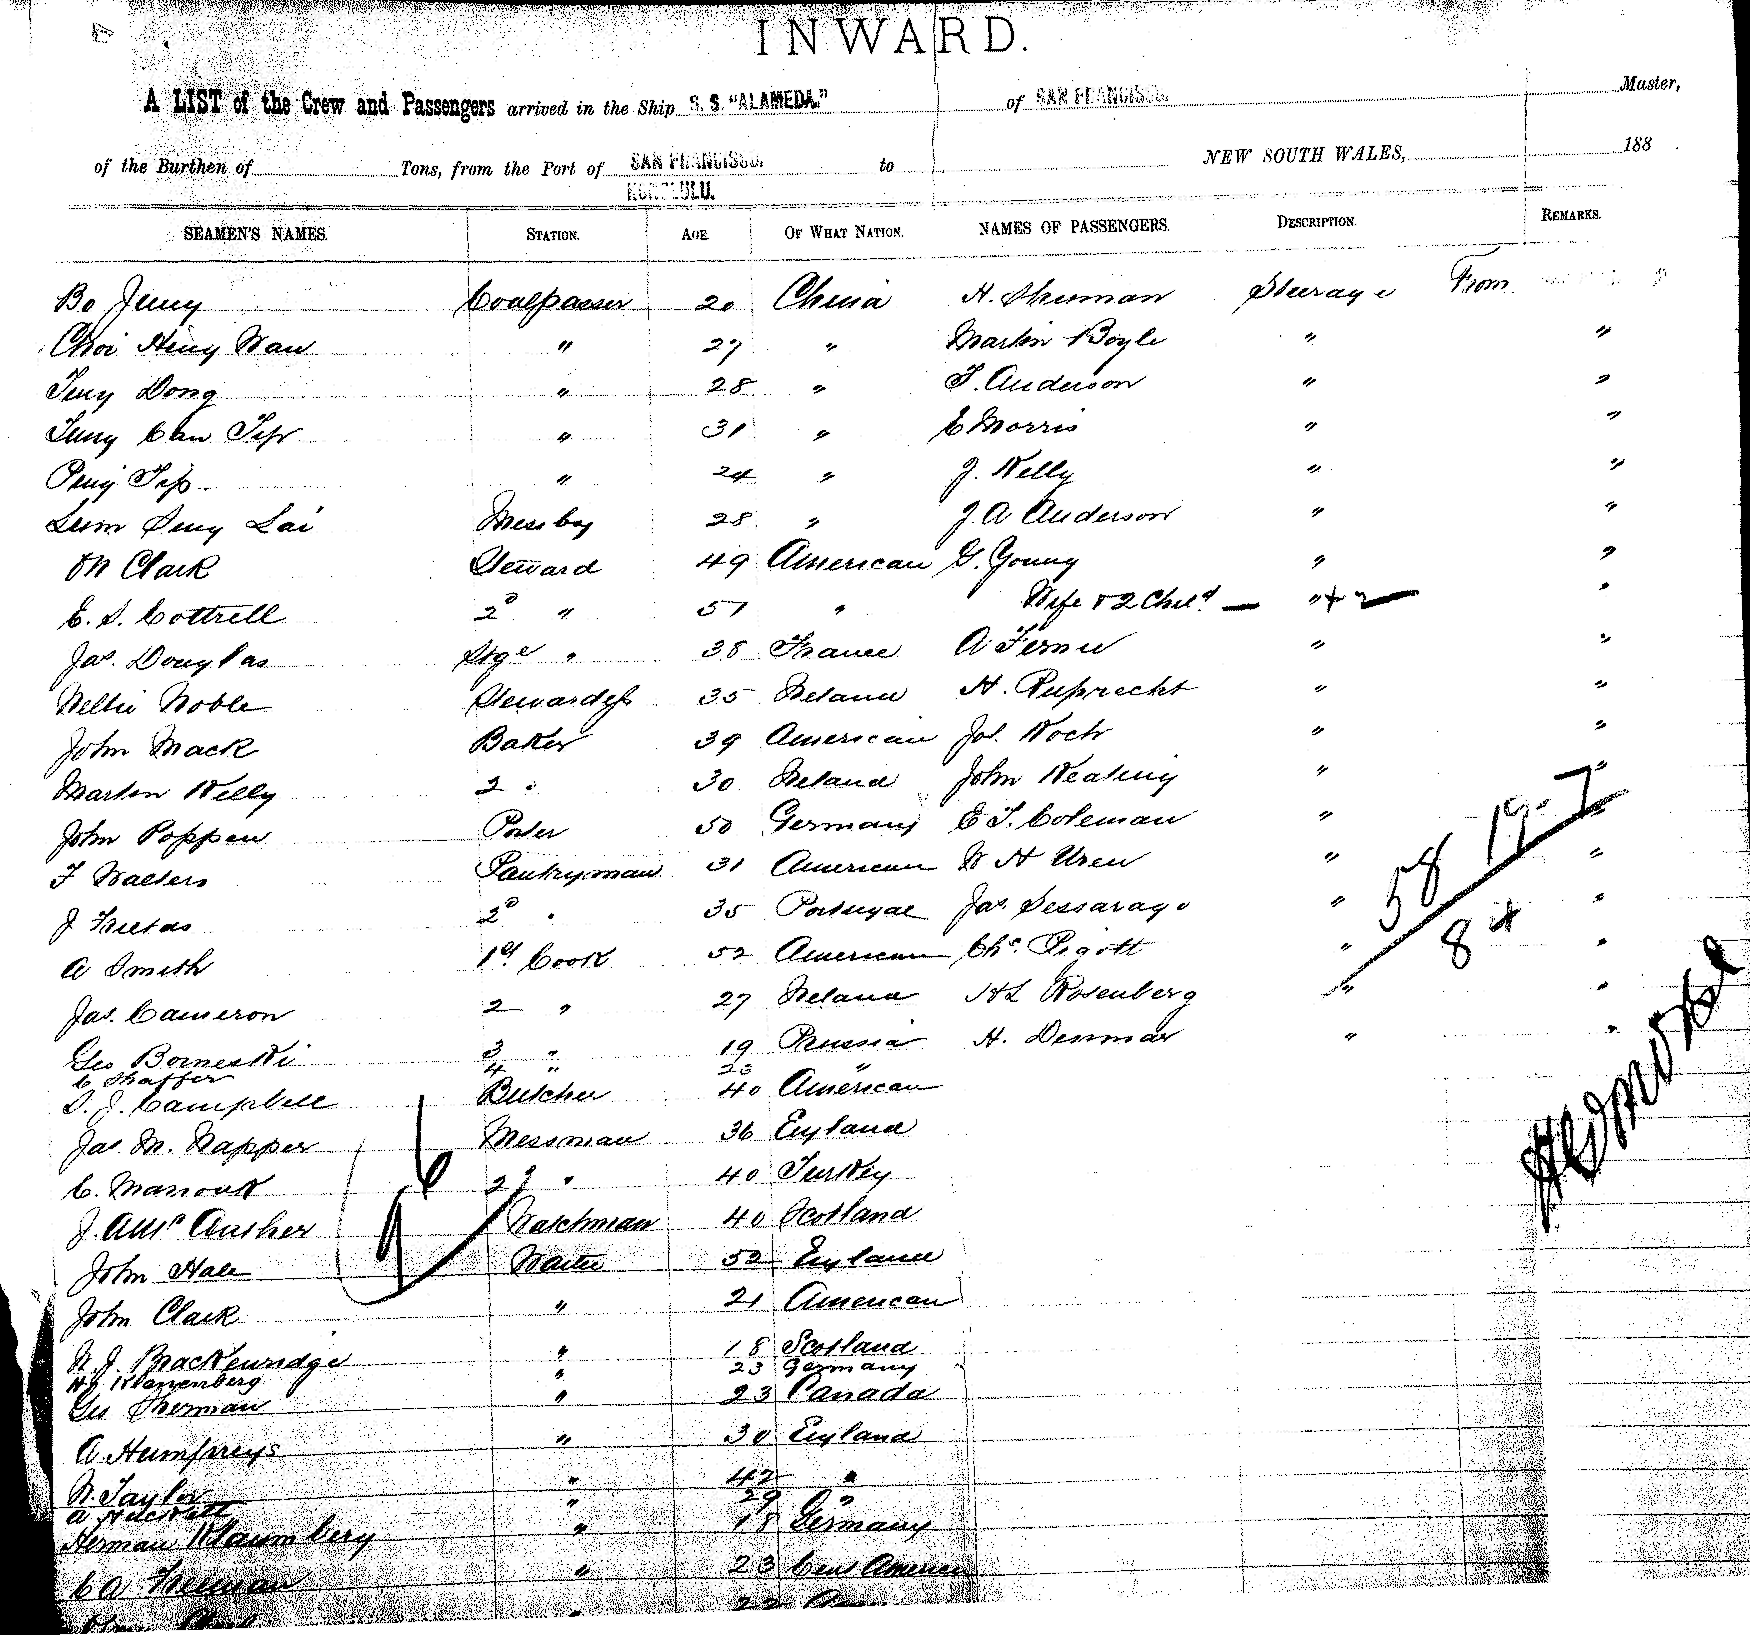 INWARD.
A LIST of the Crew and Passengers arrived in the Ship S. S. "ALAMEDA." of SAN FRANCISCO. Master,
of the Burthen of Tons, from the Port of SAN FRANCISCO. to NEW SOUTH WALES, 188
HONOLULU.
SEAMEN'S NAMES. STATION. AGE. OF WHAT NATION. NAMES OF PASSENGERS. DESCRIPTION. REMARKS.
Bo Jung Coalpasser 20 China H. Shuman Steerage From
Choi Hing Wau " 27 " Martin Boyle " "
Tung Dong " 28 " F. Anderson " "
Tung Can Tip " 31 " E Morris " "
Tip " 24 " J. Kelly " "
Lum Sing Lai Messboy 28 " J. A Anderson " "
Clark Steward 49 American G. Young " "
E. S. Cottrell 2d " 51 " Wife & 2 Chld — " + 2 — "
Jas. Douglas Stge " 38 France A " "
Nellie Noble Stewardess 35 Ireland H. Ruprecht " "
John Mack Baker 39 American Jos. Koch " "
Martin Kelly 2 " 30 Ireland John Keating " "
John Poppen Porter 50 Germany E T. Coleman " "
F Walters Pantryman 31 American W H Uren " "
J Freitas 2d " 35 Portugal Jas. " "
A Smith 1st Cook 52 American Chs. Pigott " "
Jas. Cameron 2 " 27 Ireland H L Rosenberg " "
Geo Borneski 3 " 19 Russia H. Denmar " "
C Shaffer 4 " 23 "
D. J. Campbell Butcher 40 American
Jas. M. Napper Messman 36 England
C. Marrouk 2d " 40 Turkey
J. Watchman 40 Scotland
John Hale Waiter 52 England
John Clark " 21 American
W. J. Brackenridge " 18 Scotland
H J Klanenberg " 23 Germany
Geo Sherman " 23 Canada
A. Humphreys " 30 England
W. Taylor " 42 "
A Hackett " 29 "
Herman Klaumberg " 18 Germany
C A Freeman " 23 Cent American
22
58 19. 7
8